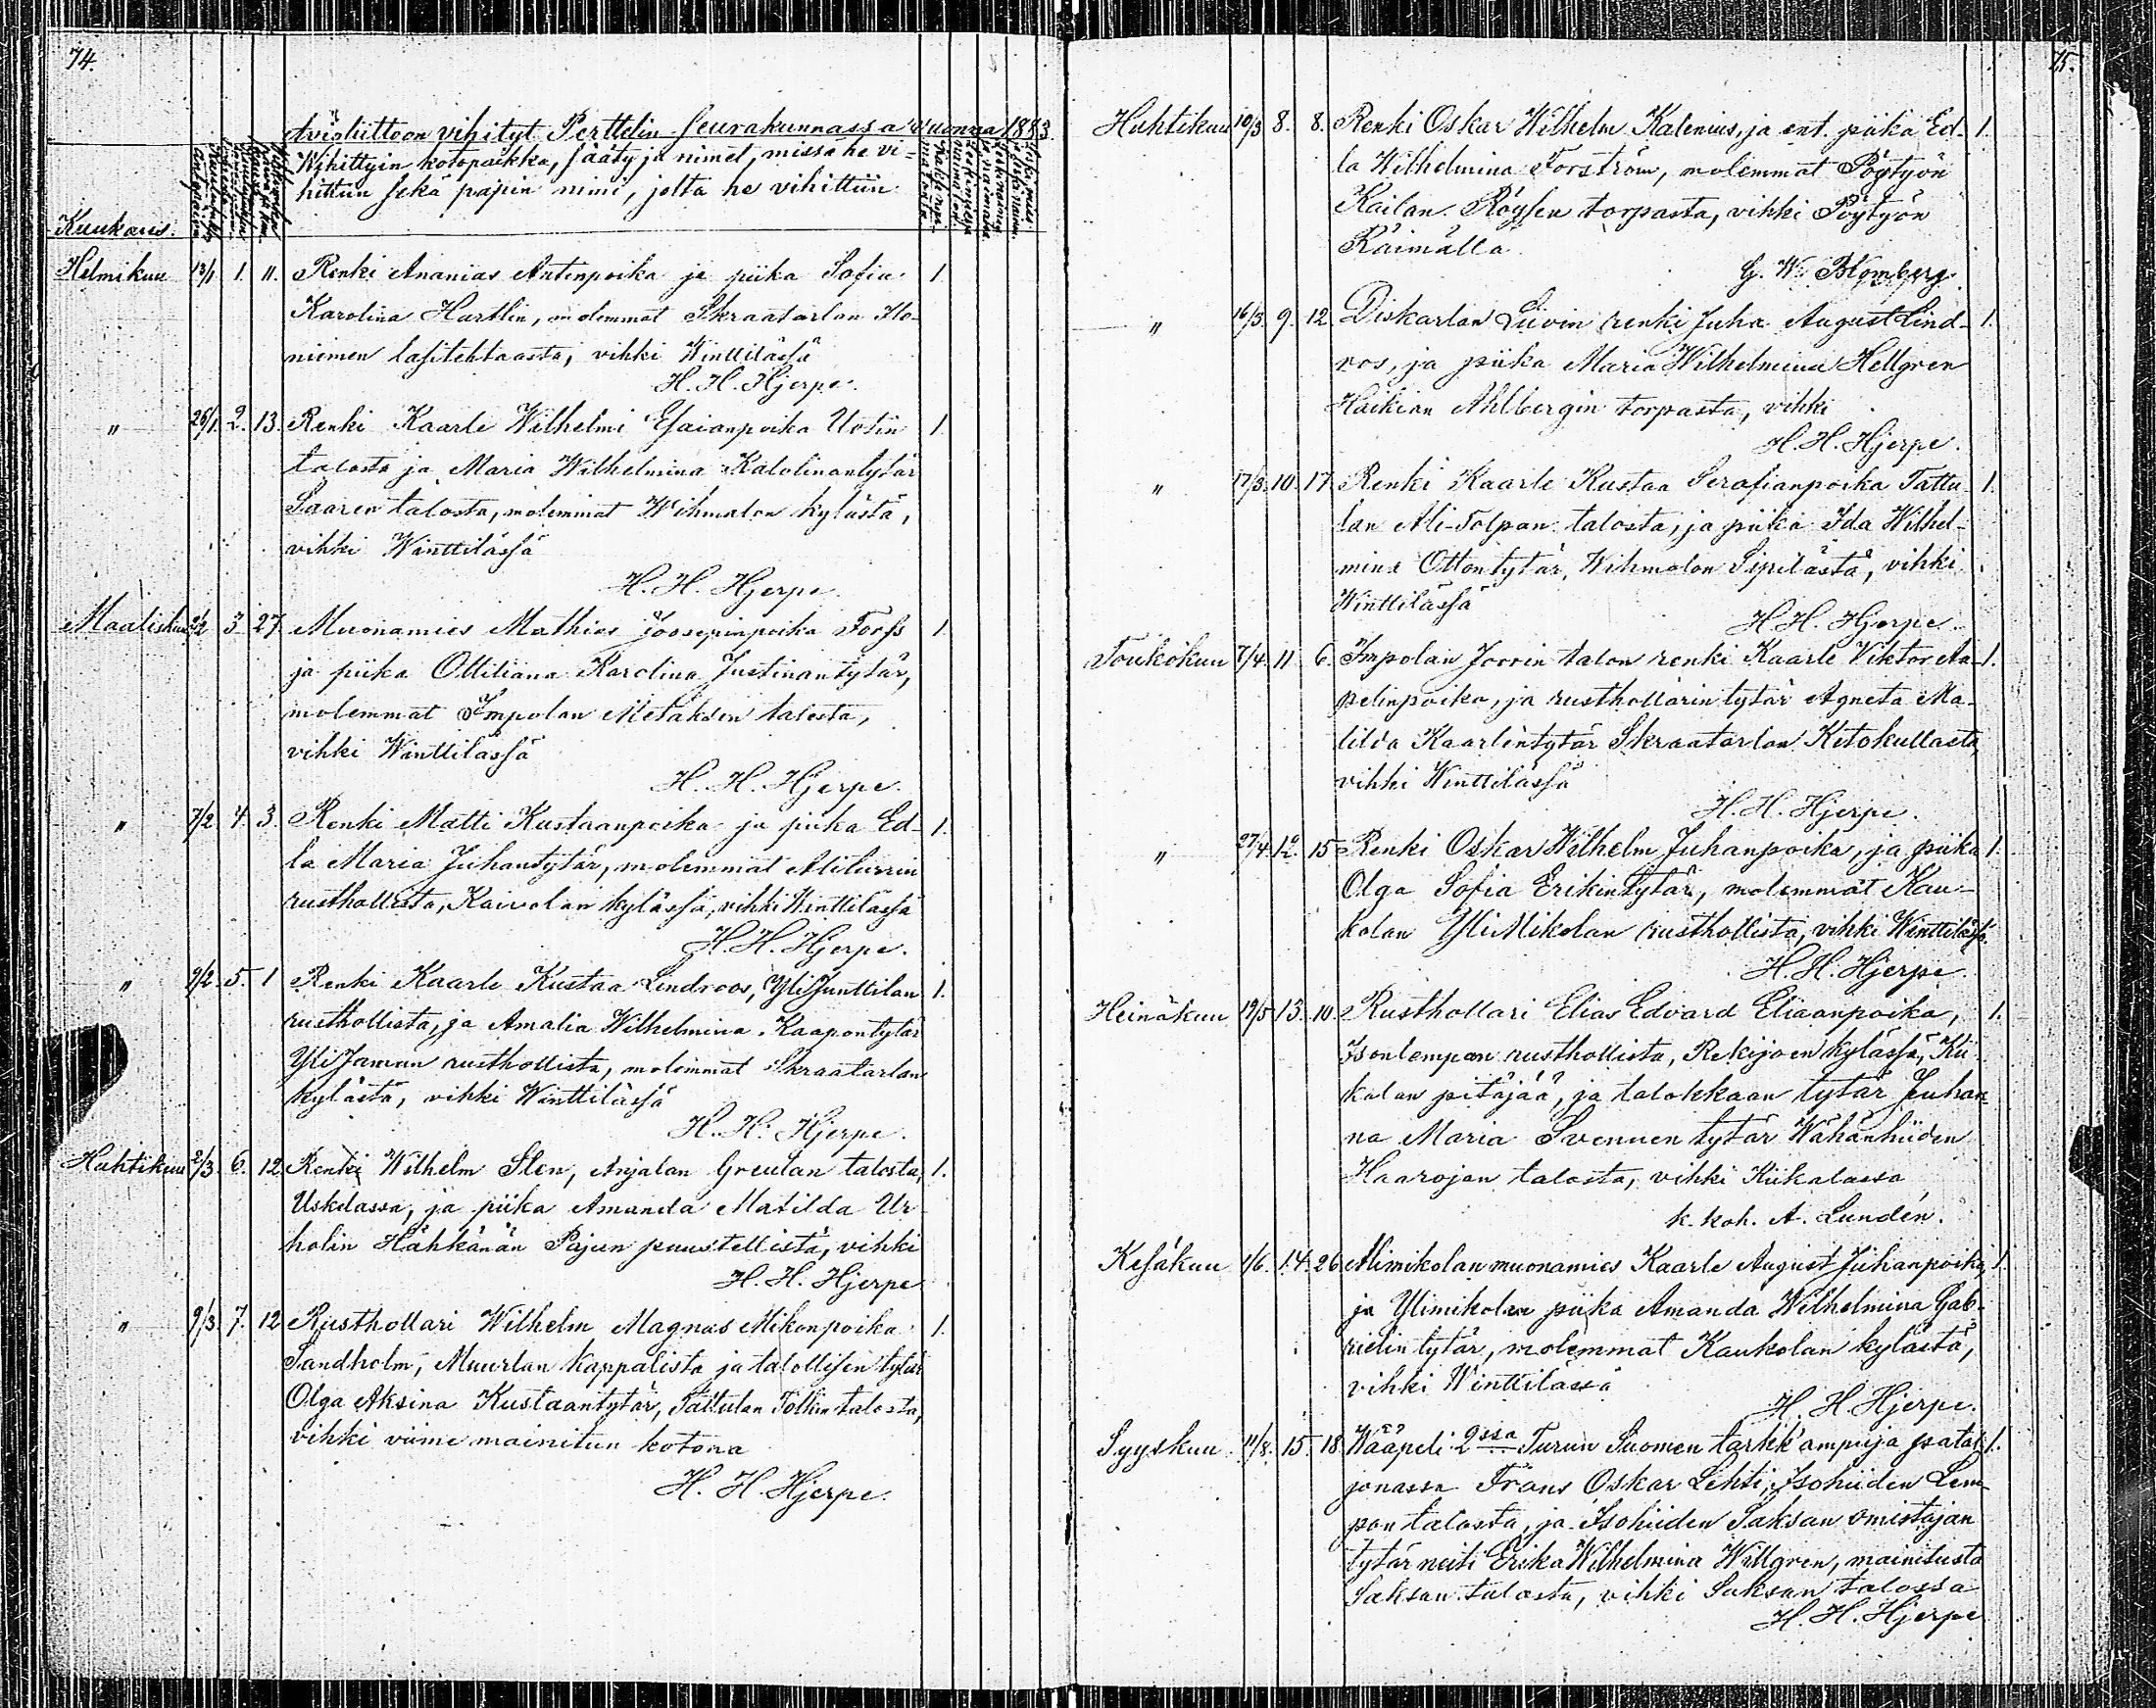 74.
Avioliittoon vihityt Perttelin seurakunnassa vuonna 1883.
Wihittyin kotopaikka, sääty ja nimet, missä he vi-
hittiin sekä papin nimi, jolta he vihittiin
Kuukausi.
Helmikuu 13/1 1. 11. Renki Ananias Antinpoika ja piika Sofia 1.
Karolina Hartlin, molemmat Skraatarlan Ilo-
niemen lasitehtaasta, vihki Winttilässä
H. H. Hjerpe.
" 26/1. 2. 13. Renki Kaarle Wilhelmi Esaianpoika Uotin 1.
talosta ja Maria Wilhelmina Katolinantytär
Saaren talosta, molemmat Wihmalon kylästä,
vihki Winttilässä
H. H. Hjerpe.
Maaliskuu 3. 27 Muonamies Mathias Joosepinpoika Forss 1.
ja piika Ottiliana Karolina Justinantytär,
molemmat Impolan Metaksen talosta,
vihki Winttilässä
H. H. Hjerpe.
" 7/2 4. 3. Renki Matti Kustaanpoika ja piika Ed- 1.
la Maria Juhantytär, molemmat Alilurrin
rusthollista, Kaivolan kylässä, vihki Winttilässä
H. H. Hjerpe.
" 9/2. 5. 1 Renki Kaarle Kustaa Lindroos, YliJunttilan 1.
rusthollista, ja Amalia Wilhelmina Kaapontytär
YliJaman rusthollista, molemmat Skraatarlan
kylästä, vihki Winttilässä
H. H. Hjerpe.
Huhtikuu 2/3. 6. 12 Renki Wilhelm Sten, Anjalan Greulan talosta, 1.
Uskelassa, ja piika Amanda Matilda Ur-
holin Hähkänän Pajun puustellista, vihki
H. H. Hjerpe
" 9/3. 7. 12 Rusthollari Wilhelm Magnus Mikonpoika 1.
Sandholm, Muurlan kappalista ja talollisen tytär
Olga Aksina Kustaantytär, Tattulan Tolkin talosta,
vihki viime mainitun kotona
H. H. Hjerpe.
75.
Huhtikuu 10/3 8. 8. Renki Oskar Wilhelm Kalenius, ja ent. piika Ed- 1.
la Wilhelmina Forström, molemmat Pöytyön
Kailan Röysen torpasta, vihki Pöytyön
Räimällä
G. W. Blomberg.
" 16/3. 9. 12. Diskarlan Liivin renki Juha August Lind- 1.
ros, ja piika Maria Wilhelmina Hellgren
Haikian Ahlbergin torpasta, vihki
H. H. Hjerpe.
" 17/3. 10. 17. Renki Kaarle Kustaa Serafianpoika Tattu- 1.
lan Ali-Tolpan talosta, ja piika Ida Wilhel-
mina Ottontytär, Wihmalon Sipilästä, vihki
Winttilässä
H. H. Hjerpe.
Toukokuu 7/4. 11 6. Impolan Jorrin talon renki Kaarle Viktor Aa- 1.
pelinpoika, ja rusthollarin tytär Agneta Ma-
tilda Kaarlentytär Skraatarlan Ketokullasta
vihki Winttilässä
H. H. Hjerpe.
" 27/4 12. 15 Renki Oskar Wilhelm Juhanpoika, ja piika 1.
Olga Sofia Erikintytär, molemmat Kau-
kolan YliMikolan rusthollista, vihki Winttilässä
H. H. Hjerpe.
Heinäkuu 19/5 13. 10. Rusthollari Elias Edvard Eliaanpoika, 1.
Isonlempan rusthollista, Rekijoen kylässä, Kii-
kalan pitäjää, ja talokkaan tytär Juhan-
na Maria Svenuen tytär Wähänhiiden
Haarojan talosta, vihki Kiikalassa
k. koh. A. Lundén.
Kesäkuu 1/6. 14. 26 Alimikolan muonamies Kaarle August Juhanpoika, 1.
ja Ylimikolan piika Amanda Wilhelmina Gab-
rielin tytär, molemmat Kaukolan kylästä,
vihki Winttilässä
H. H. Hjerpe.
Syyskuu 11/8. 15. 18 Wääpeli 2ssa Turun Suomen tarkk'ampuja patal- 1.
jonassa Frans Oskar Lehti, Isohiiden Lem-
pan talosta, ja Isohiiden Saksan omistajan
tytär neiti Erika Wilhelmina Willgren, mainitusta
Saksan talosta, vihki Saksan talossa
H. H. Hjerpe